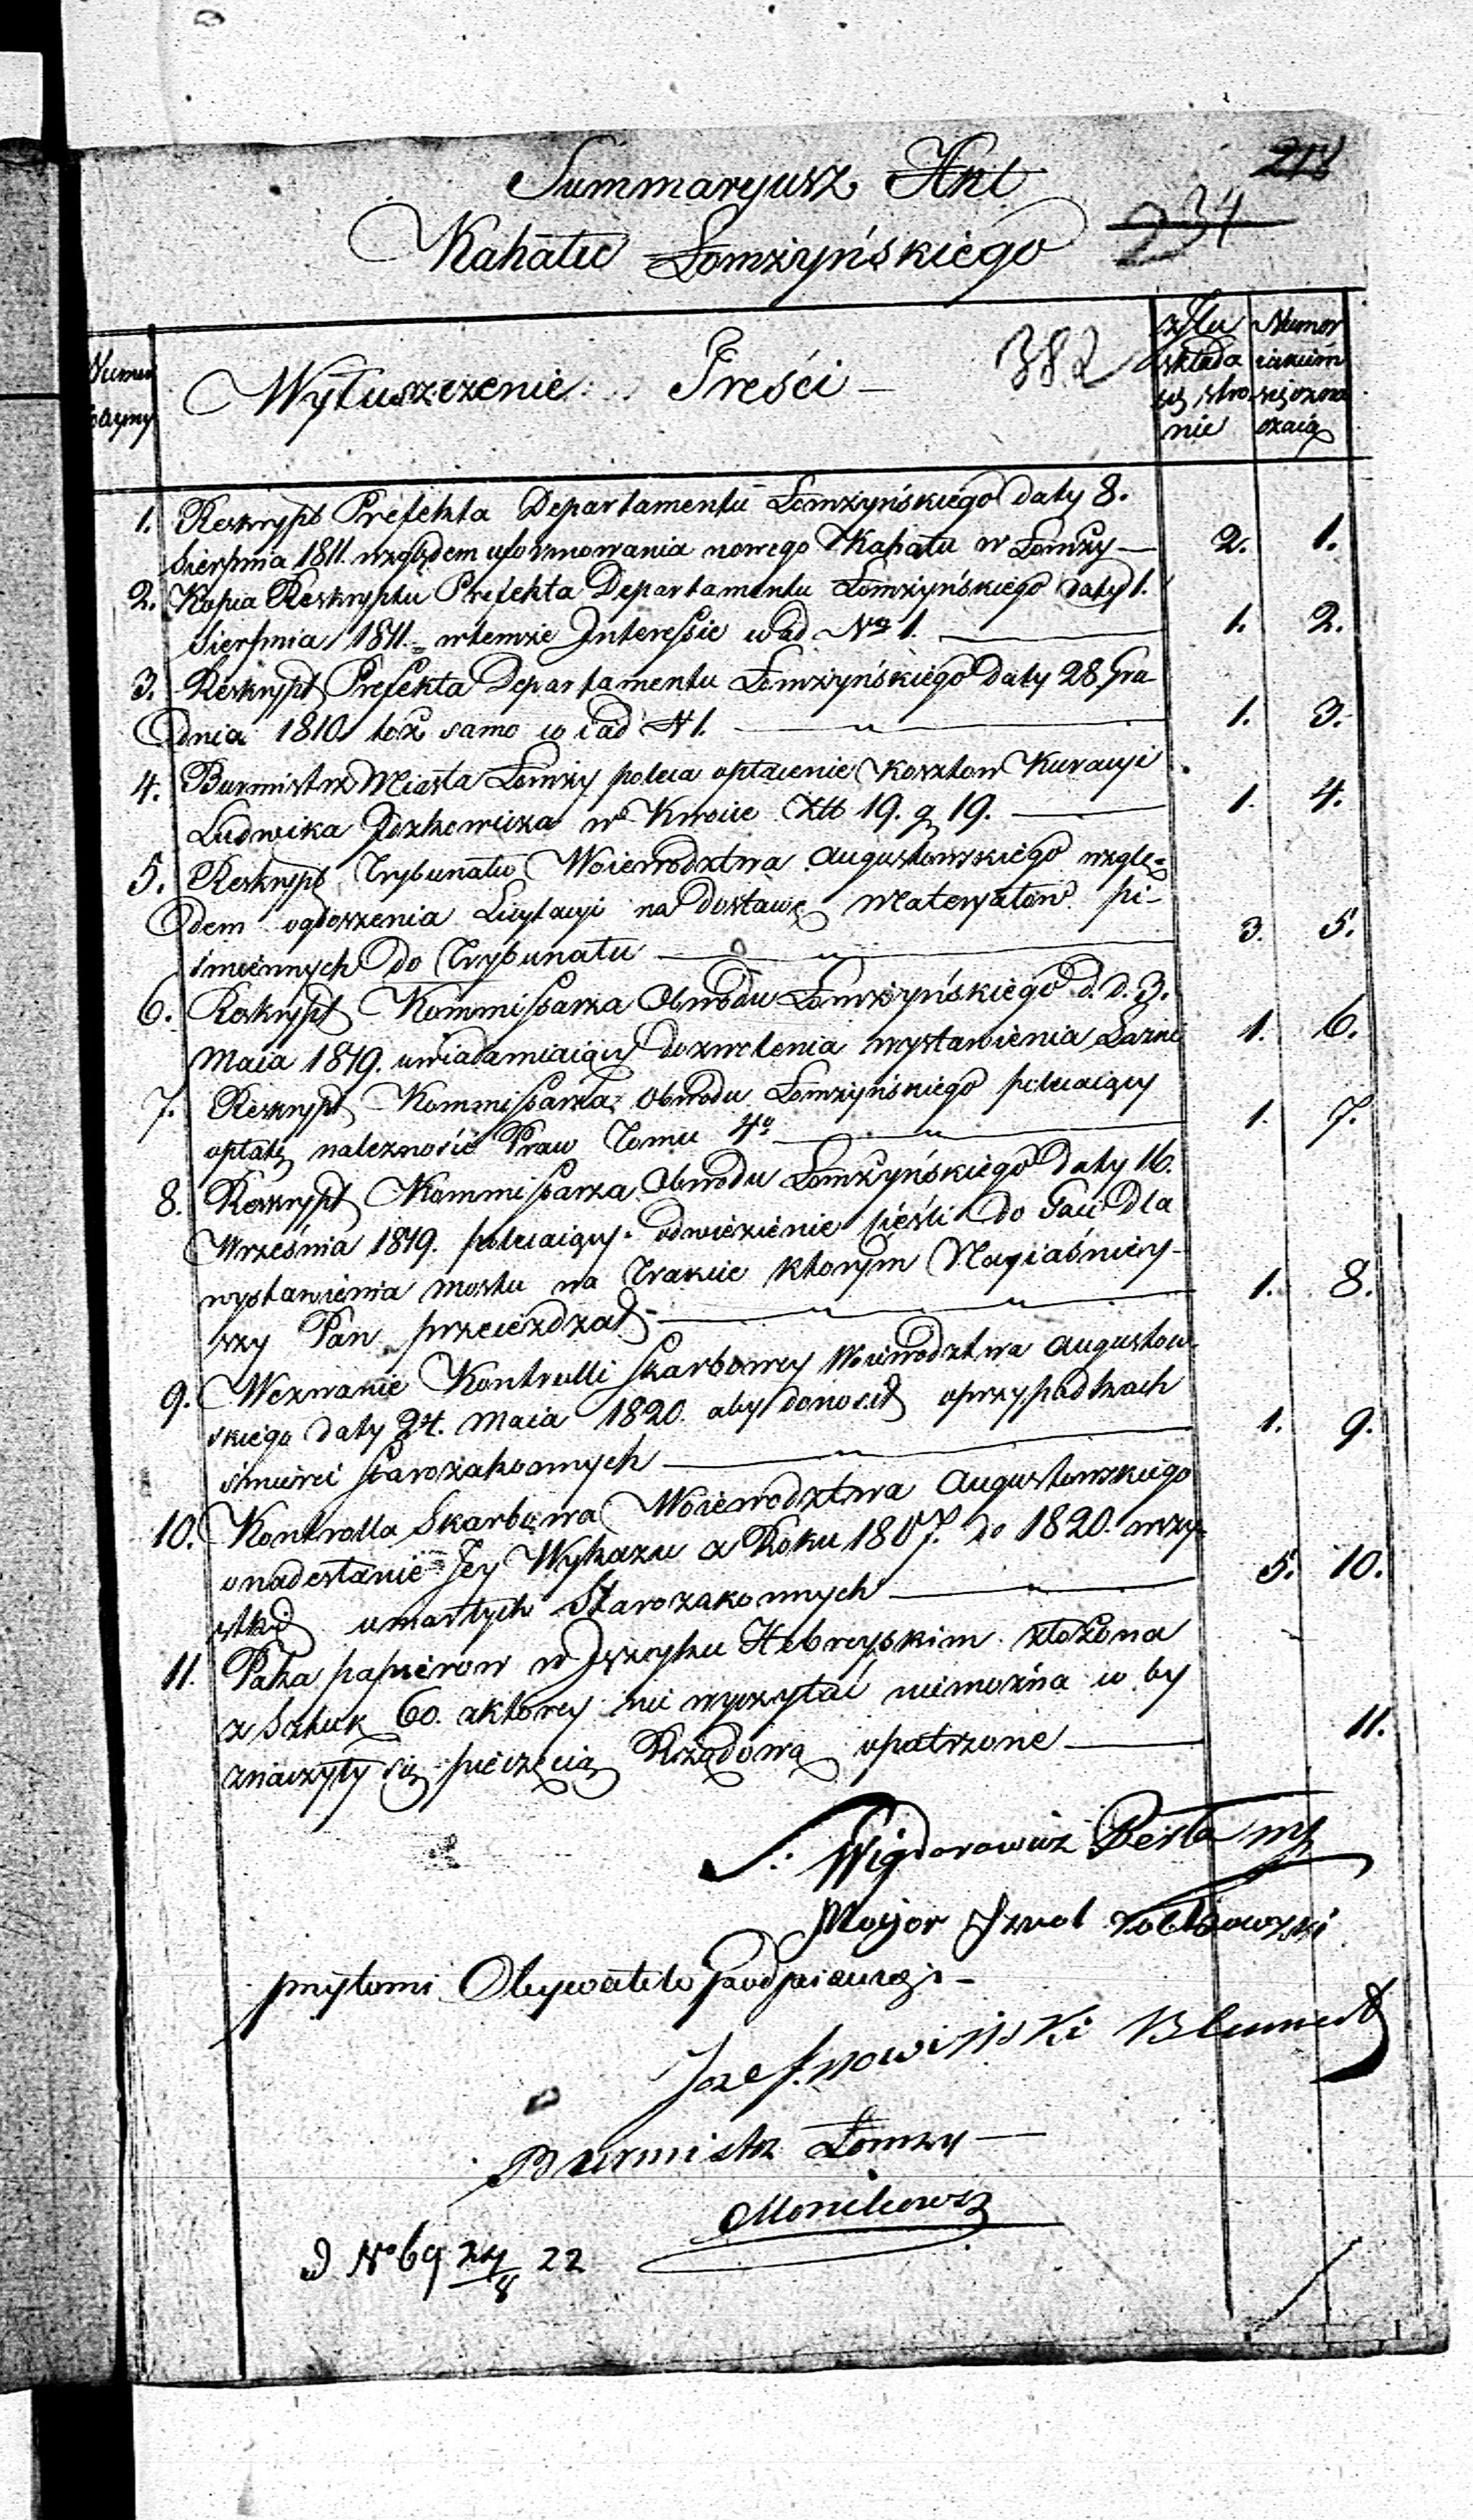 218
Summaryusz Akt
234
Kahału Łomżyńskiego
Numer
Wyłuszczenie Treści —
382
z Ilu składa się stro nie
Numer iakim się ozna czaią
1. Reskrypt Prefekta Departamentu Łomżyńskiego daty 8.
Sierpnia 1811. względem uformowania nowego Kahału w Łomży — 2. 1.
2. Kopia Reskryptu Prefekta Departamentu Łomżyńskiego daty 1.
Sierpnia 1811. wtemże Interessie co ad No 1. — 1. 2.
3. Reskrypt Prefekta Departamentu Łomżyńskiego daty 28 Gru
dnia 1810 toż samo co i ad N 1. — 1. 3.
4. Burmistrz Miasta Łomży poleca opłacenie Kosztow Kuracyi
Ludwika w Kwocie Xtt 19. g 19. — 1. 4.
5. Reskrypt Trybunału Woiewodztwa Augustowskiego wzglę-
dem ogłoszenia Licytacyi na dostawę Materyałow pi-
śmiennych do Trybunału — 3. 5.
6. Reskrypt Kommissarza Obwodu Łomżyńskiego d. d. 3.
Maia 1819. uwiadamiaiący dozwolenia wystawienia Łaźni 1. 6.
7. Reskrypt Kommissarza Obwodu Łomżyńskiego polecaiący
opłatę należności Praw Tomu 4o — 1. 7.
8. Reskrypt Kommissarza Obwodu Łomżyńskiego daty 16.
Września 1819. polecaiący odwiezienie cieśli do Gać dla
wystawienia mostu na Trakcie ktorym Nayiaśniey-
szy Pan przeieżdzał — 1. 8.
9. Wezwanie Kontrolli Skarbowey Woiewodztwa Augustow-
skiego daty 24. Maia 1820. aby donosił o przypadkach
śmierci Starozakonnych — 1. 9.
10. Kontrolla Skarbowa Woiewodztwa Augustowskiego
o nadesłanie Jey Wykazu z Roku 1807. do 1820. wszy-
stkich umarłych Starozakonnych — 5. 10.
11. Paka papierow w Języku Hebreyskim złożona
z Sztuk 60. z ktorey nie wyczytać niemożna co by
znaczyły się pieczęcią Rządową opatrzone — 11.
S: Wigdorowicz Berła
Mayor
przytomni Obywatele
Jozef Nowiński
Burmistrz Łomży —
No 69 24/8 22